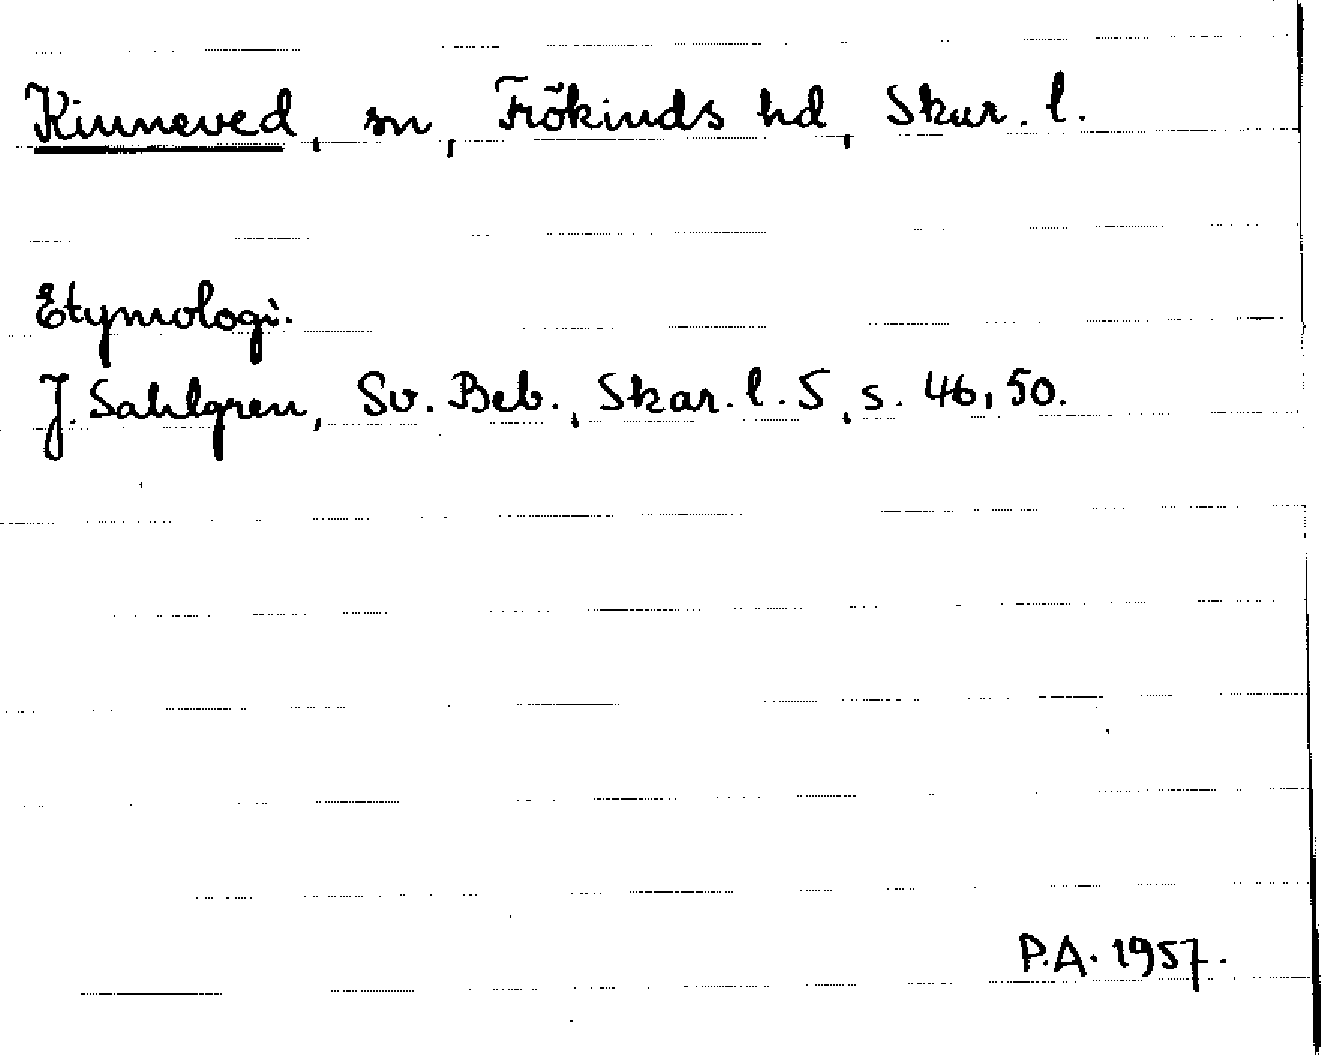 Kinneved, sn, Frökinds hd, Skar. l.
Etymologi.
J. Sahlgren, Sv. Beb., Skar. l. 5, s. 46, 50.
P.A. 1957.